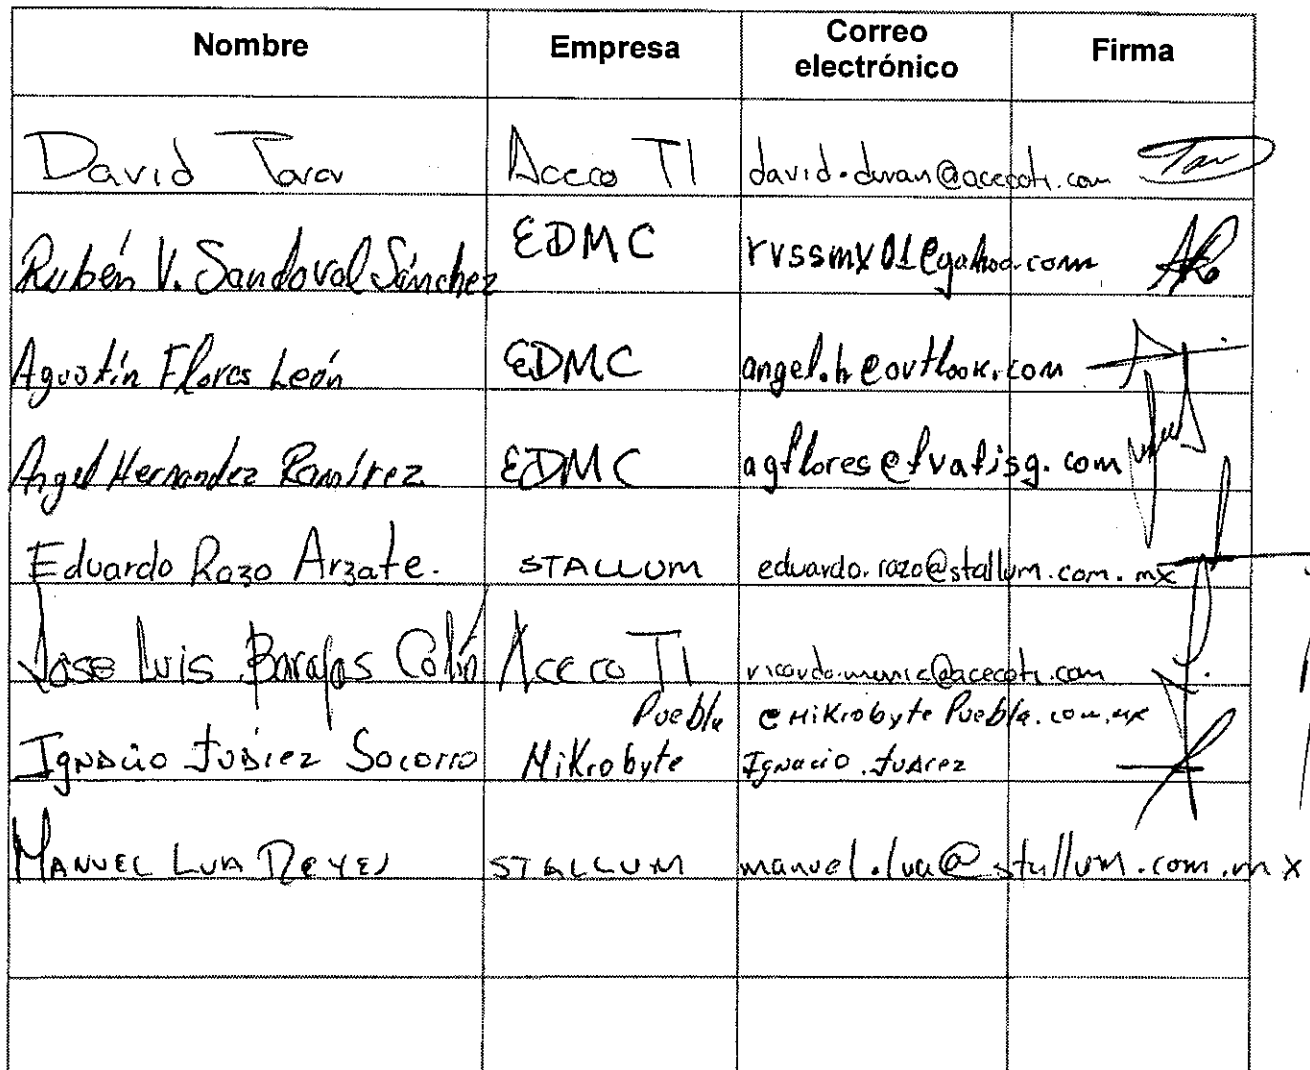 Nombre Empresa Correo electrónico Firma
David Tovar Aceco TI david.duran@acecoti.com
Rubén V. Sandoval Sánchez EDMC rvssmx01@yahoo.com
Agustín Flores León EDMC angel.h@outlook.com
Angel Hernandez Ramírez EDMC
Eduardo Razo Arzate. STALLUM eduardo.razo@stallum.com.mx
Jose Luis Barajas Colín Aceco TI
Puebla @MikrobytePuebla.com.mx
Ignacio Juárez Socorro Mikrobyte Ignacio.Juarez
MANUEL LUA REYES STALLUM manuel.lua@stallum.com.mx